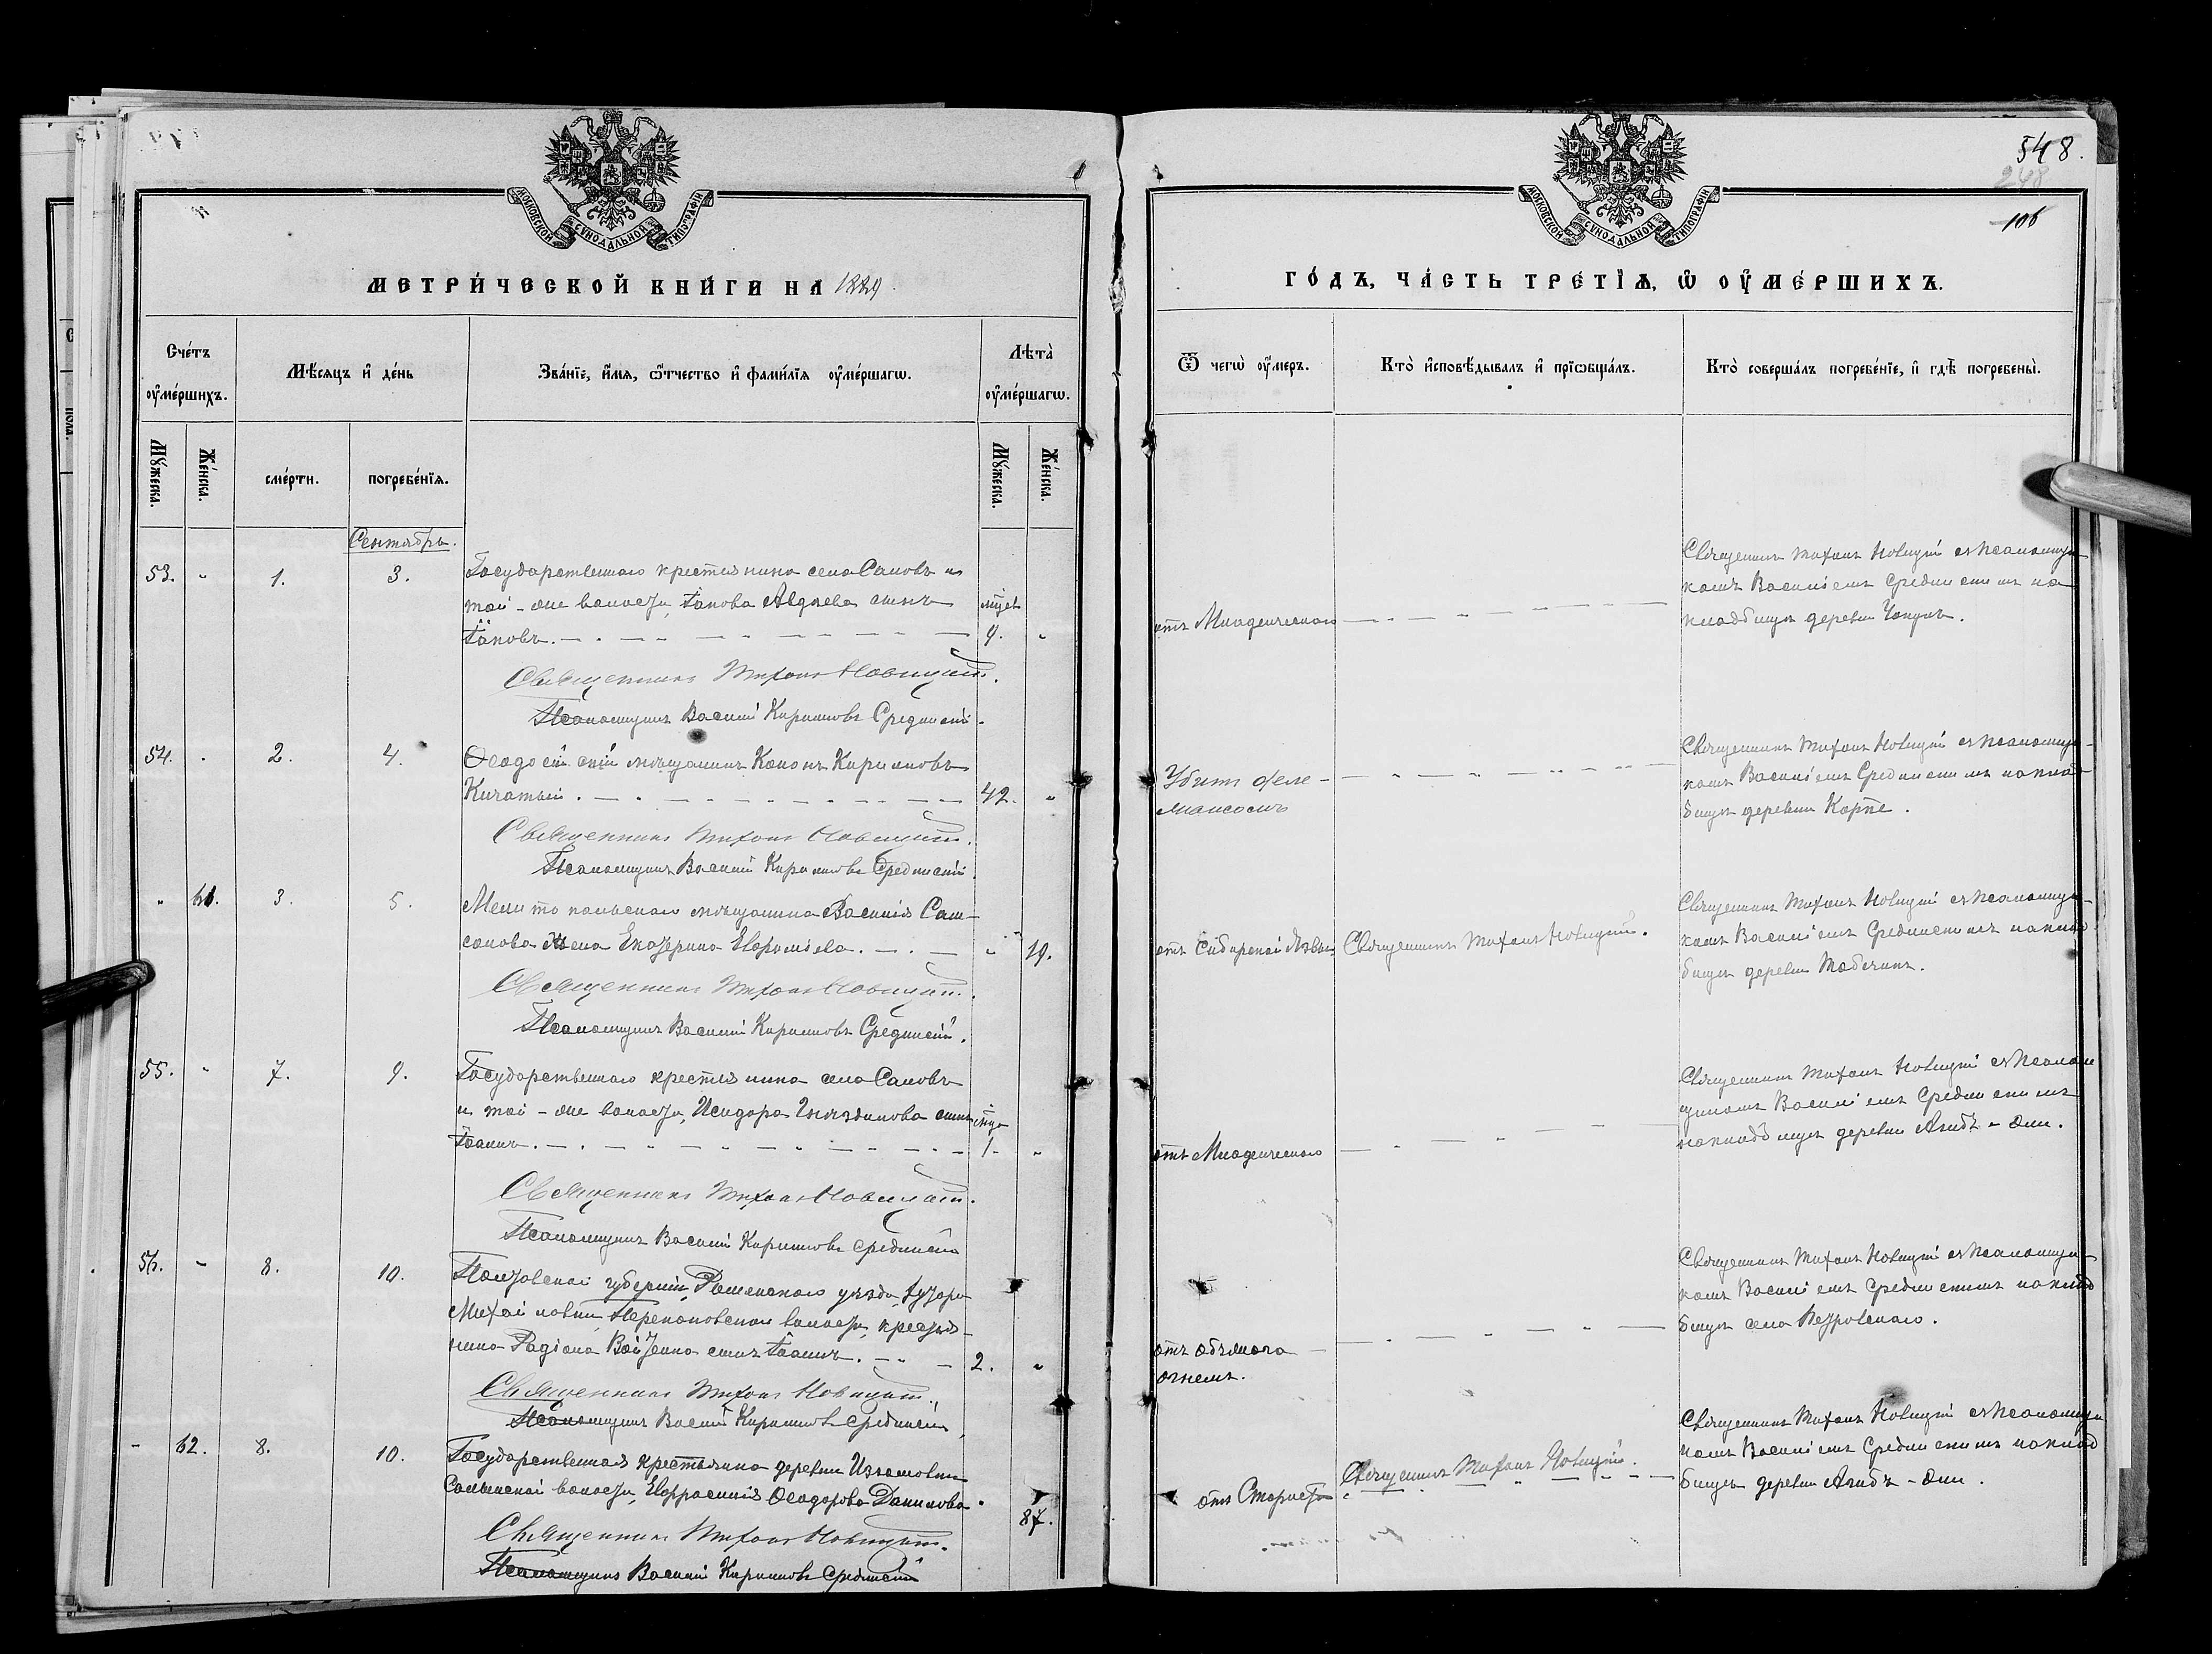 МОСКОВСКОЙ СУНОДАЛЬНОЙ ТИПОГРАФІИ
МЕТРИ́ЧЕСКОЙ КНИ́ГИ НА 1889.
Сче́тъ оу҆ме́ршихъ.
Мѣ́сяцъ и҆ де́нь
Зва́нїе, и҆́мѧ, ѻ҆́тчество и҆ фами́лїѧ оу҆ме́ршагѡ.
Лѣта̀ оу҆ме́ршагѡ.
Мꙋ́жеска.
Же́нска.
сме́рти.
погребе́нїѧ.
Мꙋ́жеска.
Же́нска.
Сентябрь.
53. " 1. 3. Государственнаго крестьянина села Саловъ и
той-же волости, Іакова Авдѣева сынъ
Іаковъ. 9. "
Священникъ Тихонъ Новицкій.
Псаломщикъ Василій Кириловъ Срединскій.
54. " 2. 4. Ѳеодосійскій мѣщанинъ Кононъ Кириловъ
42. "
Священникъ Тихонъ Новицкій.
Псаломщикъ Василій Кириловъ Срединскій.
" 61. 3. 5. Мелитопольскаго мѣщанина Василія Сам-
сонова жена Екатерина Евфиміева. " 19.
Священникъ Тихонъ Новицкій.
Псаломщикъ Василій Кириловъ Срединскій.
55. " 7. 9. Государственнаго крестьянина села Саловъ
и той-же волости, Исидора Гнѣздилова сынъ
Іоаннъ. 1. "
Священникъ Тихонъ Новицкій.
Псаломщикъ Василій Кириловъ Срединскій
56. " 8. 10. Полтавской губерніи, уѣзда, хутора
Михайловки, волости, крестья-
нина Родіона сынъ Іоаннъ. 2. "
Священникъ Тихонъ Новицкій.
Псаломщикъ Василій Кириловъ Срединскій
- 62. 8. 10. Государственная крестьянка деревни
волости, Евфросинія Ѳеодорова Данилова.
87.
Священникъ Тихонъ Новицкій.
Псаломщикъ Василій Кириловъ Срединскій
548.
248
106
МОСКОВСКОЙ СУНОДАЛЬНОЙ ТИПОГРАФІИ
ГО́ДЪ, ЧА́СТЬ ТРЕ́ТЇѦ, Ѡ҆ ОУ҆МЕ́РШИХЪ.
Ѿ чегѡ̀ оу҆́меръ.
Кто̀ и҆сповѣ́дывалъ и҆ прїѡбща́лъ.
Кто̀ соверша́лъ погребе́нїе, и҆ гдѣ̀ погребены̀.
отъ Младенческаго
Священникъ Тихонъ Новицкій съ псаломщи-
комъ Василіемъ Срединскимъ на
кладбищѣ деревни
Убитъ
Священникъ Тихонъ Новицкій съ псаломщи-
комъ Василіемъ Срединскимъ на клад-
бищѣ деревни Карпе.
отъ Сибирской Язвы
Священникъ Тихонъ Новицкій.
Священникъ Тихонъ Новицкій съ псаломщи-
комъ Василіемъ Срединскимъ на клад-
бищѣ деревни
отъ Младенческаго
Священникъ Тихонъ Новицкій съ псалом-
щикомъ Василіемъ Срединскимъ
на кладбищѣ деревни Агибъ-Эли.
отъ
огнемъ.
Священникъ Тихонъ Новицкій съ псаломщи-
комъ Василіемъ Срединскимъ на клад-
бищѣ села Петровскаго.
отъ Старости
Священникъ Тихонъ Новицкій.
Священникъ Тихонъ Новицкій съ псаломщи-
комъ Василіемъ Срединскимъ на клад-
бищѣ деревни Агибъ-Эли.